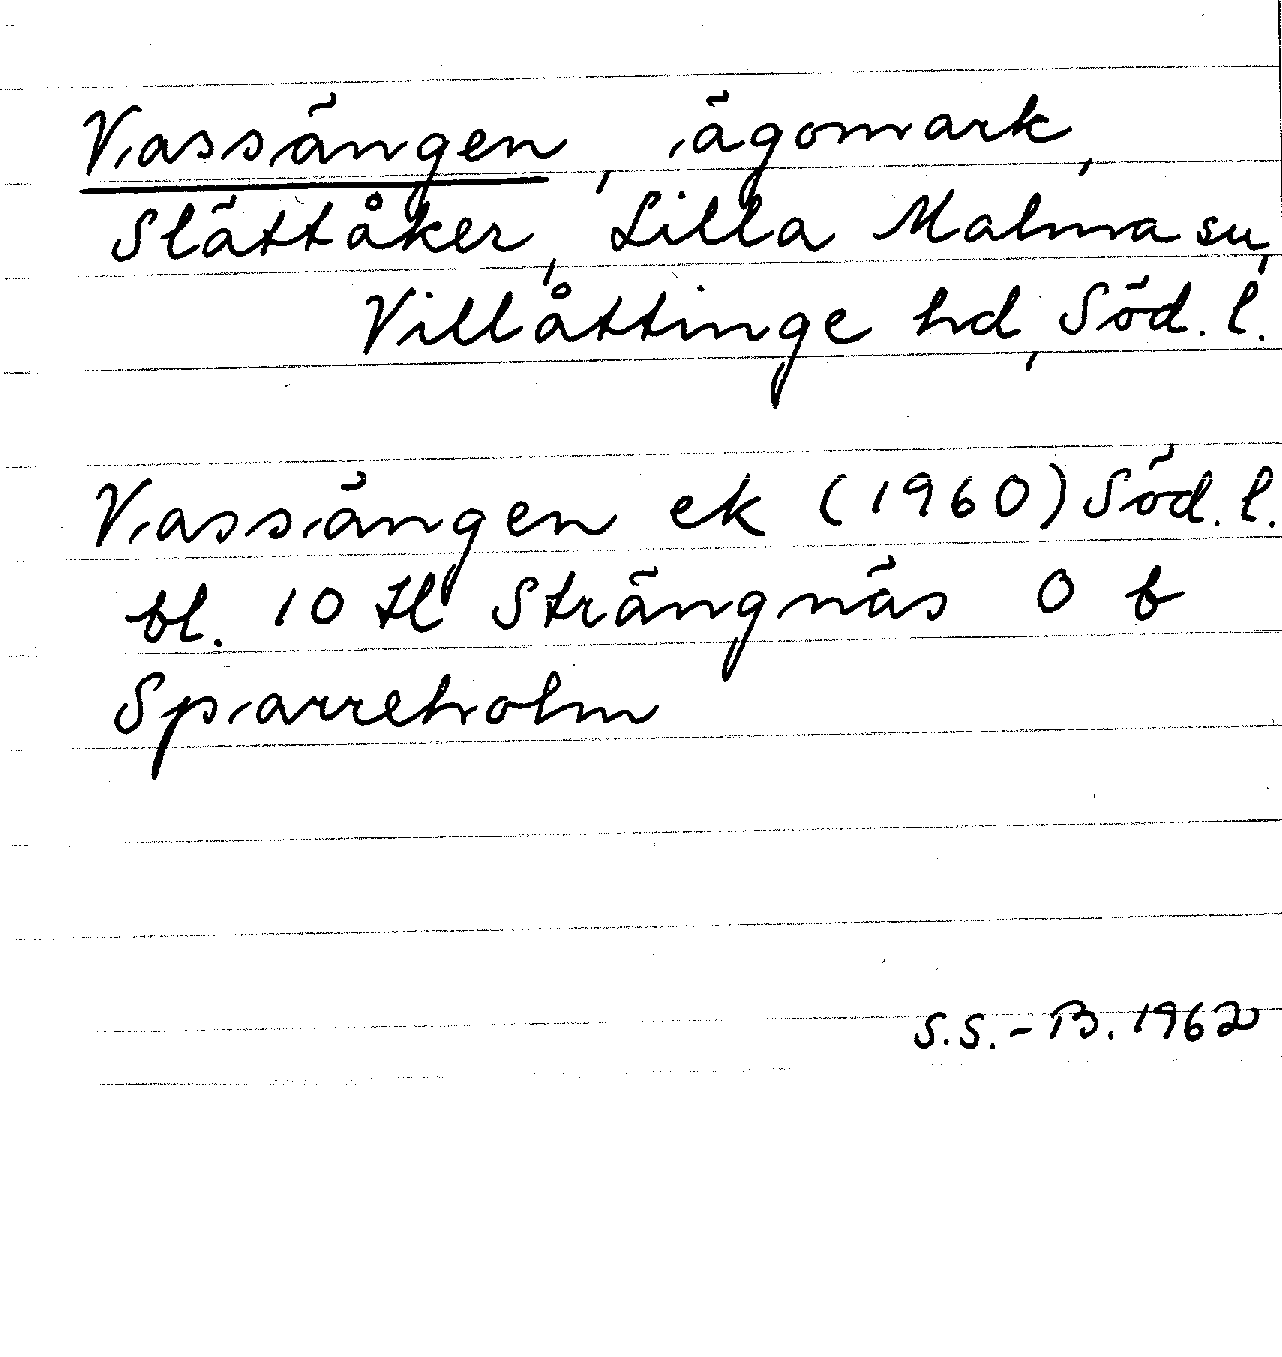 Vassängen, ägomark,
Slättåker, Lilla Malma sn,
Villåttinge hd, Söd. l.
Vassängen ek (1960) Söd. l.
bl. 10 H Strängnäs O b
Sparreholm
S.S.-B. 1962